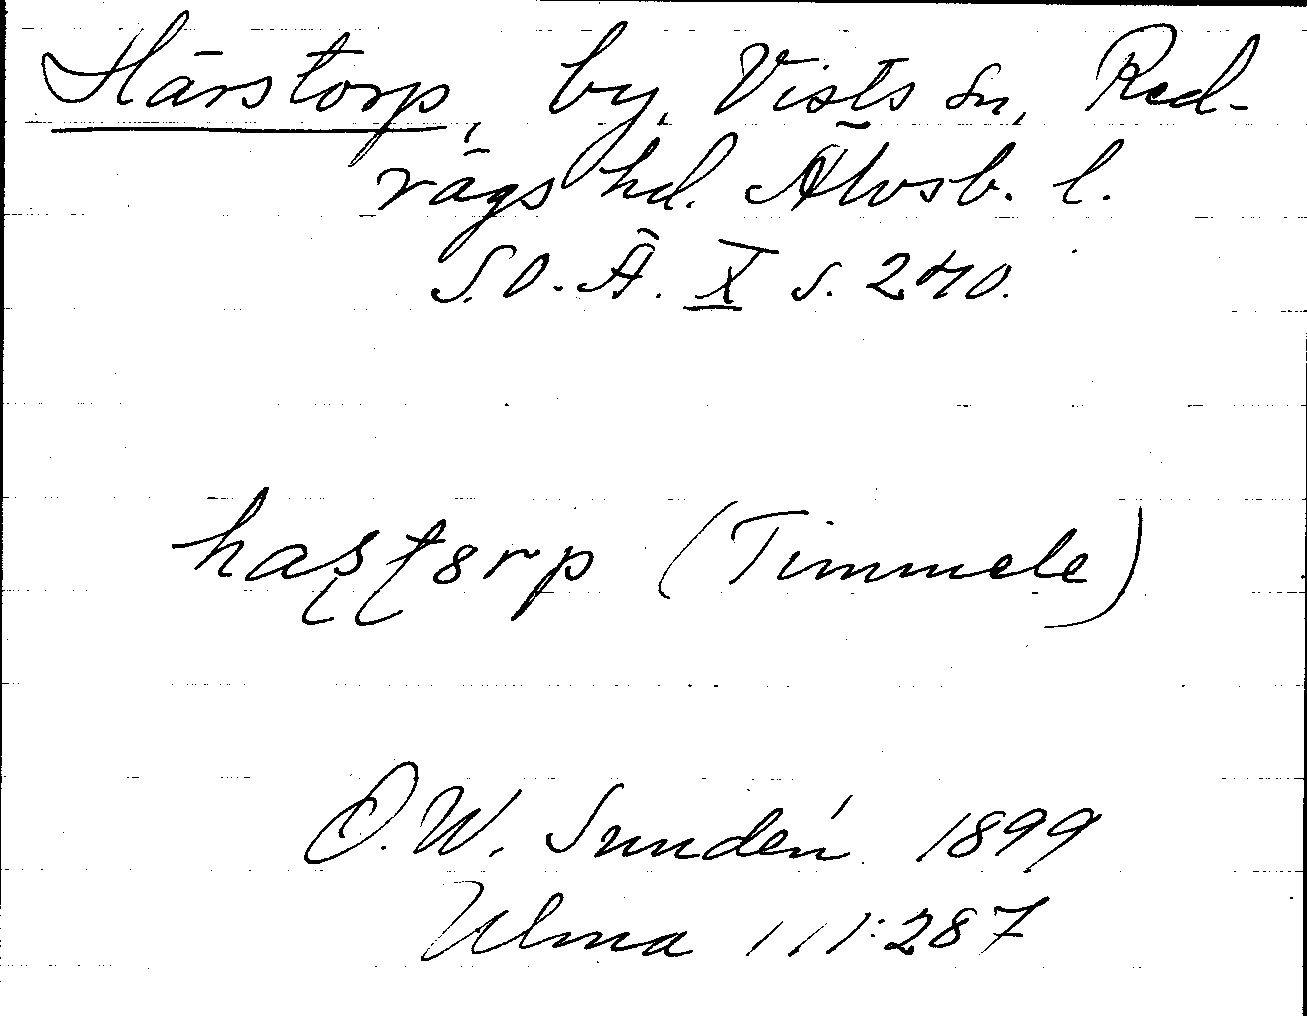 Härstorp, by, Vists sn, Red-
vägs hd. Älvsb. l.
S.O.Ä. X s. 240.
haʂʈɞrp (Timmele)
D.W. Sundén 1899
Ulma 111:287